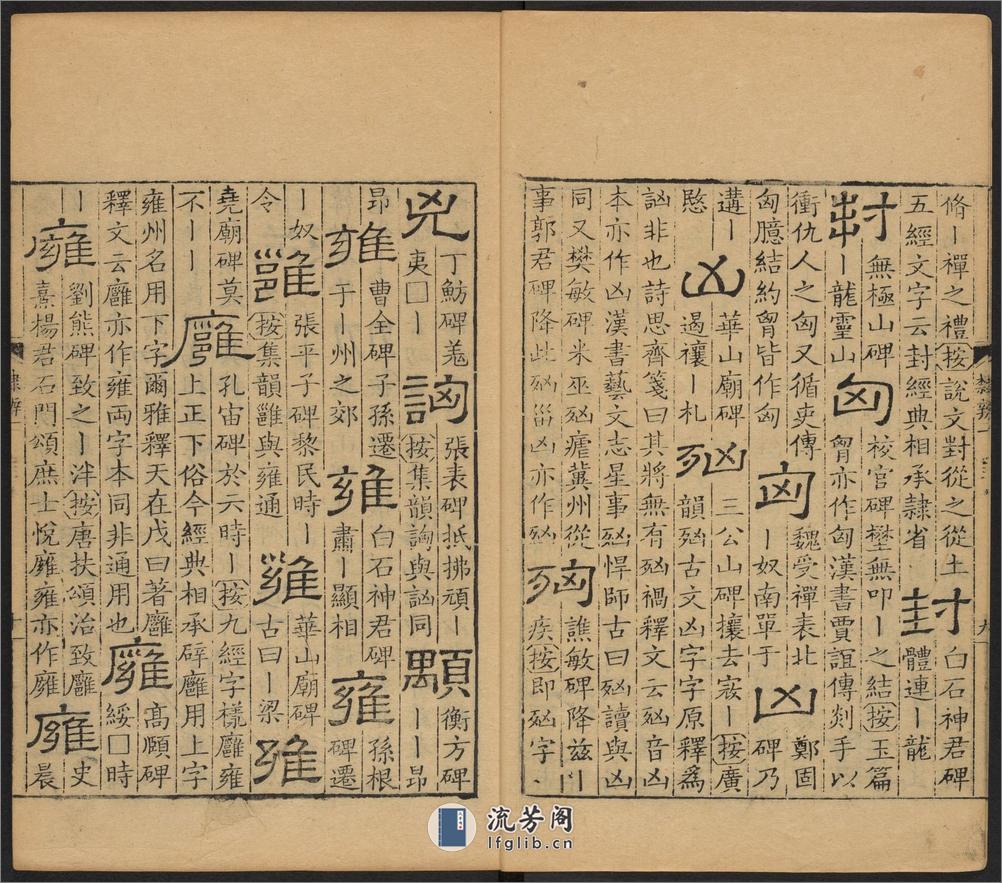 脩丨禪之禮按說文封從之從土
五經文字云封經典相承隷省
封
白石神君碑
體連丨龍
封
無極山碑
丨龍靈山
匈
校官碑㙜無叩丨之結按玉篇
胷亦作匈漢書賈誼傳剡手以
衝仇人之匈又循吏傳
匈臆結約胷皆作匈
匈
魏受禪表北
丨奴南單于
凶
鄭固
碑乃
遘丨
愍
凶
華山廟碑
遏禳丨札
𣧑
三公山碑攘去寇丨按廣
韻𣧑古文凶字字原釋為
訩非也詩思齊箋曰其將無有𣧑禍釋文云𣧑音凶
本亦作凶漢書藝文志星事𣧑悍師古曰𣧑讀與凶
同又樊敏碑米巫𣧑瘧冀州從
事郭君碑降此𣧑菑凶亦作𣧑
譙敏碑降兹丨
疾按即𣧑字丶
隸辨一
九
兇
丁魴碑羗
夷□丨
詾
張表碑抵拂頑丨
按集韻詾與訩同
顒
衡方碑
丨丨昂
昂
雍
曹全碑子孫遷
于丨州之郊
雍
白石神君碑
肅丨顯相
雍
孫根
碑遷
丨奴
令
雝
張平子碑黎民時丨
按集韻雝與雍通
雍
華山廟碑
古曰丨梁
雍
堯廟碑莫
不丨丨
廱
孔宙碑於亓時丨按九經字樣廱雍
上正下俗今經典相承辟廱用上字
雍州名用下字爾雅釋天在戊曰著廱
釋文云廱亦作雍両字本同非通用也
廱
高頤碑
綏□時
丨
廱
劉熊碑致之丨泮按唐扶頌治致廱
熹楊君石門頌庶士悅廱雍亦作廱
廱
史
晨
流芳阁
lfglib.cn